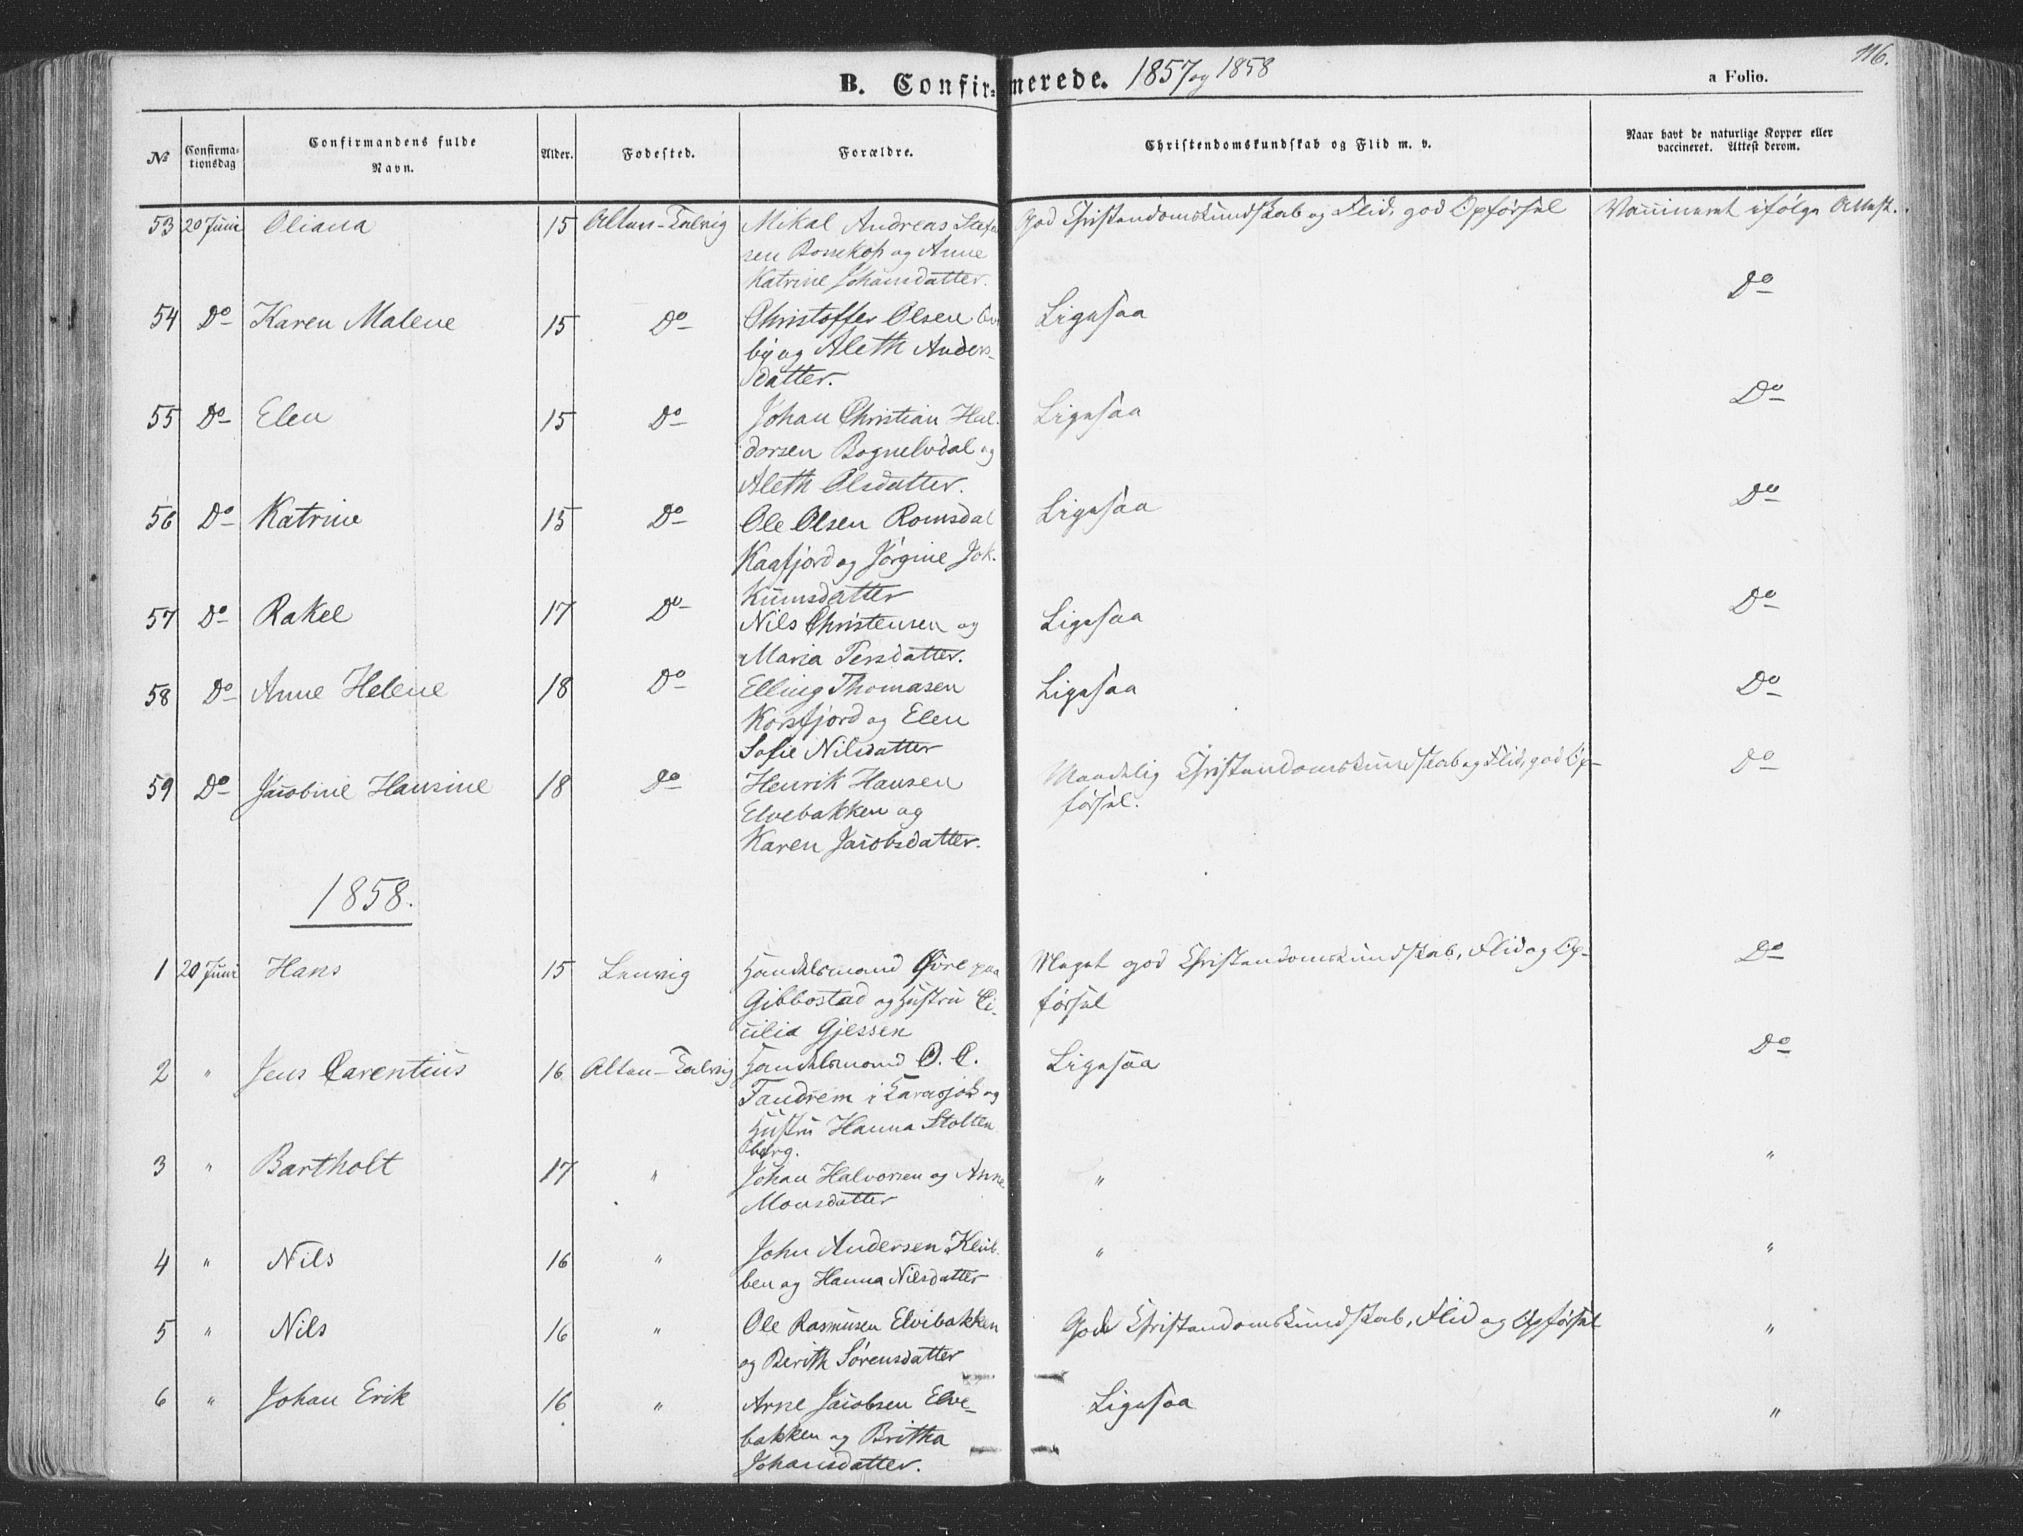 116.
B. Confirmerede. 1857 og 1858
a Folio.
№
Confirma-
tionsdag
Confirmandens fulde
Navn.
Alder.
Fødested.
Forældre.
Christendomskundskab og Flid m. v.
Naar havt de naturlige Kopper eller
vaccineret. Attest derom.
53 20 Juni Oliana 15 Alten-Talvig Mikal Andreas Stef God Christendomskundskab og Flid, god Opførsel Vaccineret ifølge Attest.
sen Bossekop og Anne
Katrine Johansdatter.
54 Do Karen Malene 15 Do Christoffer Olsen Ligesaa Do
by og Aleth Anders-
datter.
55 Do Elen 15 Do Johan Christian Hal- Ligesaa Do
dorsen Bognelvdal og
Aleth Olsdatter.
56 Do Katrine 15 Do Ole Olsen Romsdal Ligesaa Do
Kaafjord og Jørgine Jok-
kumsdatter
57 Do Rakel 17 Do Nils Christensen og Ligesaa Do
Maria Persdatter.
58 Do Anne Helene 18 Do Elling Thomasen Ligesaa Do
Korsfjord og Elen
Sofie Nilsdatter
59 Do Jacobine Hansine 18 Do Henrik Hansen Maadelig Christendomskundskab og Flid, god Op- Do
Elvebakken og førsel.
Karen Jacobsdatter.
1858.
1 20 Juni Hans 15 Lenvig Handelsmand Øvre paa Meget god Christendomskundskab, Flid og Op- Do
Gibbostad og Hustru Ce- førsel
cilia Gjessen
2 " Jens Carentius 16 Alten-Talvig Handelsmand O. C. Ligesaa Do
Fandrem i Karasjok og
Hustru Hanna Stolten-
berg.
3 " Bartholt 17 " Johan Halvorsen og Anne " "
Monsdatter
4 " Nils 16 " John Andersen Klub- " "
ben og Hanna Nilsdatter
5 " Nils 16 " Ole Rasmusen Elvibakken God Christendomskundskab, Flid og Opførsel "
og Berith Sørensdatter
6 " Johan Erik 16 " Arne Jacobsen Elve- Ligesaa "
bakken og Britha
Johansdatter.